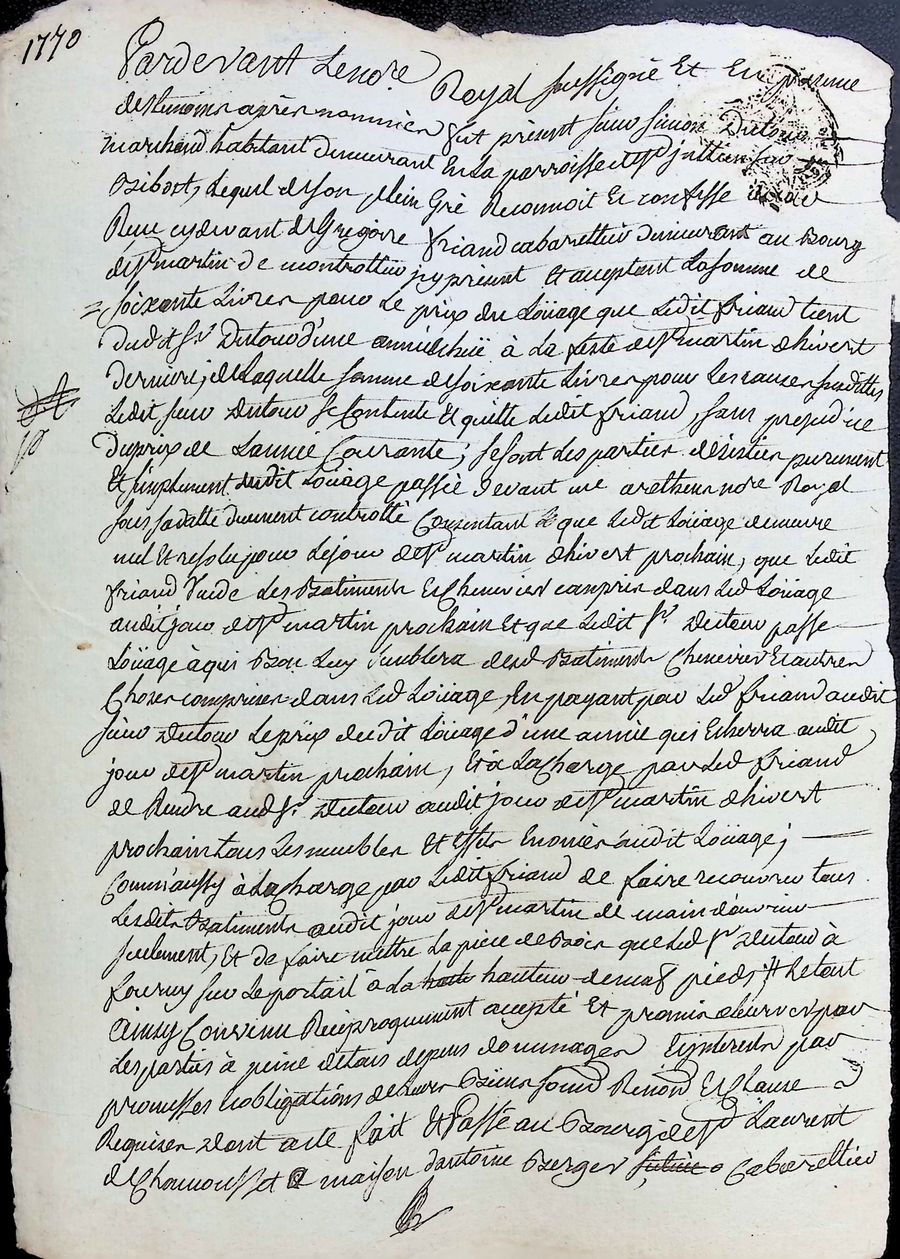 1770
Pardevant Le nore Royal soussigné Et En presence
des temoins après nommés fut présent sieur simon Dutour
marchand habitant demeurant En la parroisse de st jullien sur
Bibost, Lequel de son plein Gré Reconnoit Et confesse avoir
Reçu cydevant de Gregoire friand cabarettier demeurant au Bourg
de st martin de montrottier jcy present Et acceptant La somme de
soixante Livres pour Le prix du Loüage que Ledit friand tient
dudit sr Dutour d'une année échüe à La feste de st martin d'hivert
derniere; de Laquelle somme de soixante Livres pour Les causes susdittes
Ledit sieur Dutour se Contente Et quitte Ledit friand, sans prejudice
du prix de L'année Courante; se sont Les parties désistées purement
Et simplement dudit Loüage passé devant me nore Royal
sous sa datte duement controllé Consentant que Ledit Loüage demeure
nul Et resolu pour Le jour de st martin d'hivert prochain, que Ledit
friand Vuide Les Batiments Et Chenevier compris dans Led Loüage
audit jour de st martin prochain Et que Ledit sr Dutour passe
Loüage à qui Bon Luy semblera desd Batiments Chenevier Et autres
Choses comprises dans Led Loüage, En payant par Led friand audit
sieur Dutour Le prix dudit Loüage d'une année qui Echerra audit
jour de st martin prochain, Et à La Charge par Led friand
de Rendre aud sr Dutour audit jour de st martin d'hivert
prochain tous Les meubles Et Effets Enoncés audit Loüage;
Comm'aussy à La Charge par Ledit friand de faire recouvrir tous
Lesdits Batiments audit jour de st martin de main d'oeuvre
seulement, Et de faire mettre La piece de Bois que Led sr Dutour à
fourny sur Le portail à La haute hauteur de neuf pieds # Le tout
Ainsy Convenu Reciproquement accepté Et promis observer par
Les parties à peine de tous depens dommages Et jnterests par
promesses obligations de Leurs Biens soumd Renond Et Clause
Requises Dont acte fait Et Passé au Bourg de st Laurent
de Chamousset maison d'antoine Berger Cabarettier